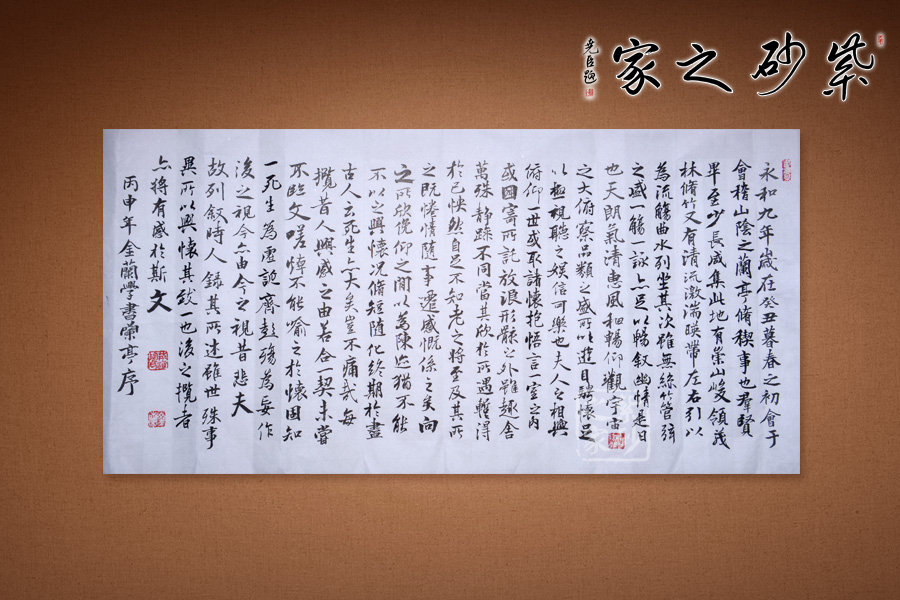 紫砂之家
光臣題
永和九年歲在癸丑暮春之初會于
會稽山陰之蘭亭脩稧事也羣賢
畢至少長咸集此地有崇山峻領茂
林脩竹又有清流激湍暎帶左右引以
為流觴曲水列坐其次雖無絲竹管弦
之盛一觴一詠亦足以暢敘幽情是日
也天朗氣清惠風和暢仰觀宇宙
之大俯察品類之盛所以遊目騁懷足
以極視聽之娛信可樂也夫人之相與
俯仰一世或取諸懷抱悟言一室之內
或因寄所託放浪形骸之外雖趣舍
萬殊靜躁不同當其欣於所遇暫得
於己怏然自足不知老之將至及其所
之既惓情隨事遷感慨係之矣向
之所欣俛仰之間以為陳迹猶不能
不以之興懷況脩短隨化終期於盡
古人云死生亦大矣豈不痛哉每
攬昔人興感之由若合一契未嘗
不臨文嗟悼不能喻之於懷固知
一死生為虛誕齊彭殤為妄作
後之視今亦由今之視昔悲夫
故列敘時人錄其所述雖世殊事
異所以興懷其致一也後之攬者
亦將有感於斯文
丙申年金蘭學書蘭亭序